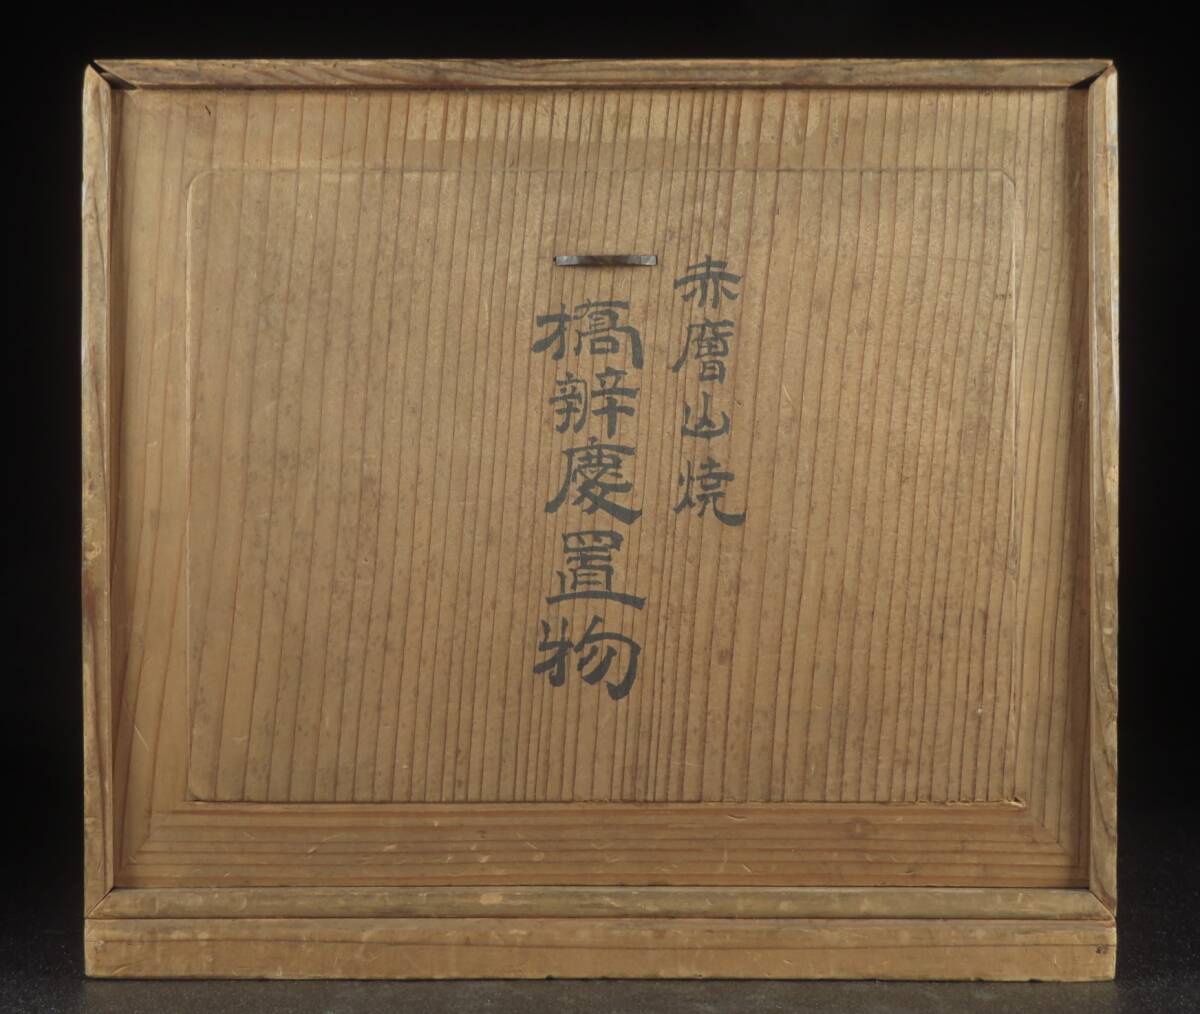 赤膚山焼
橋辨慶置物